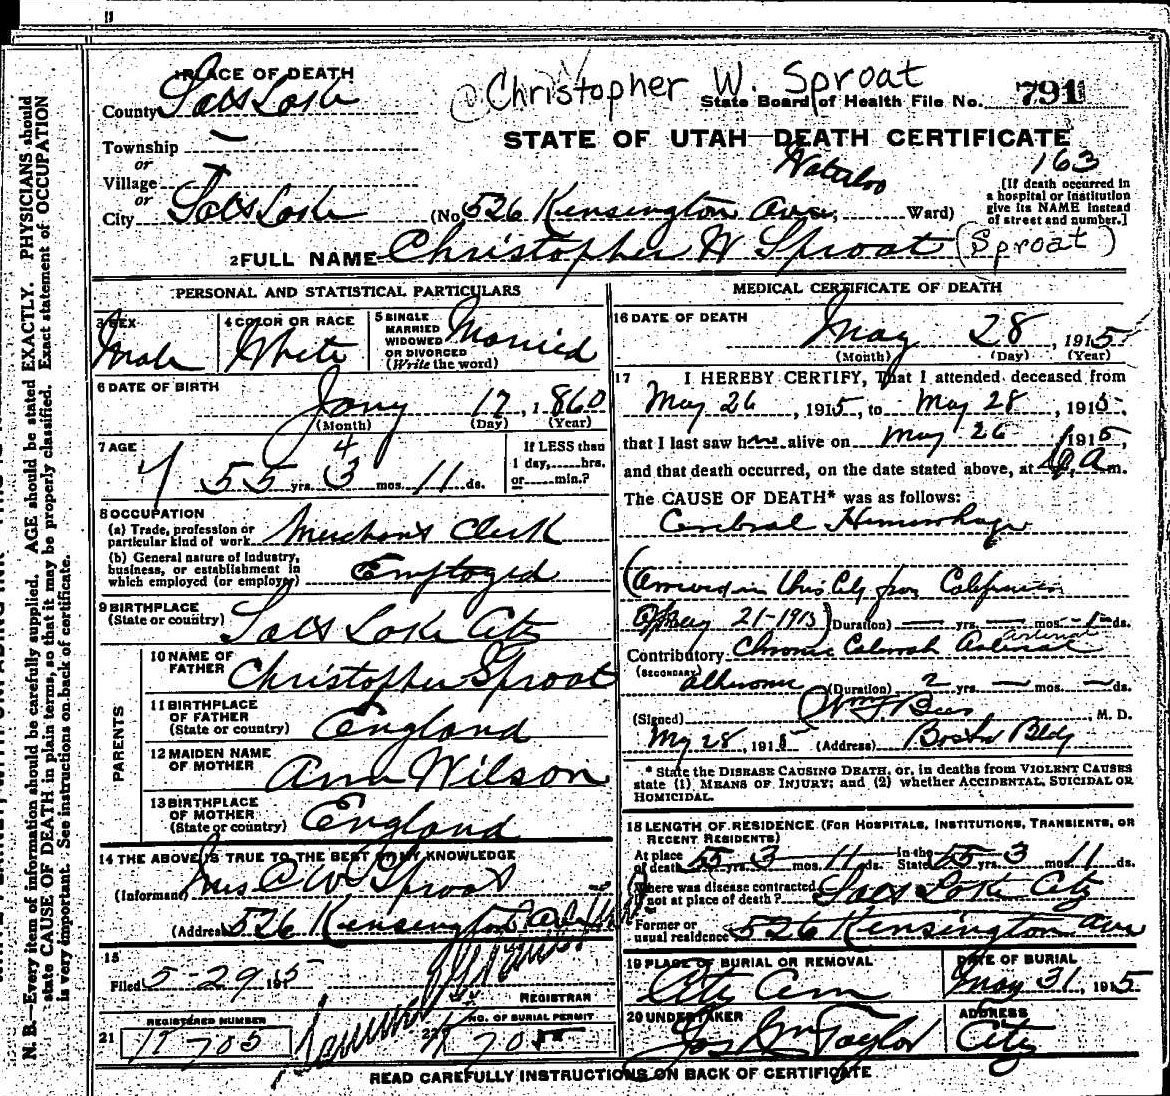 1 PLACE OF DEATH
County Salt Lake
Township —
or
Village
or
City Salt Lake
Christopher W. Sproat
State Board of Health File No. 791
STATE OF UTAH—DEATH CERTIFICATE
Waterloo 163
(No. 526 Kensington Ave St.; Ward)
[If death occurred in
a hospital or institution
give its NAME instead
of street and number.]
2 FULL NAME Christopher W Sproat (Sproat)
PERSONAL AND STATISTICAL PARTICULARS
3 SEX
Male
4 COLOR OR RACE
White
5 SINGLE
MARRIED
WIDOWED
OR DIVORCED
(Write the word)
Married
6 DATE OF BIRTH
Jany 17, 1860
(Month) (Day) (Year)
7 AGE
4
55 yrs. 3 mos. 11 ds.
If LESS than
1 day,......hrs.
or......min.?
8 OCCUPATION
(a) Trade, profession or
particular kind of work Merchant Clerk
(b) General nature of industry,
business, or establishment in
which employed (or employer) Employed
9 BIRTHPLACE
(State or country) Salt Lake City
PARENTS
10 NAME OF
FATHER Christopher Sproat
11 BIRTHPLACE
OF FATHER
(State or country) England
12 MAIDEN NAME
OF MOTHER Ann Wilson
13 BIRTHPLACE
OF MOTHER
(State or country) England
14 THE ABOVE IS TRUE TO THE BEST OF MY KNOWLEDGE
(Informant) Mrs C W Sproat
(Address) 526 Kensington
15
Filed 5-29 1915
REGISTRAR
21
REGISTERED NUMBER
705
22
NO. OF BURIAL PERMIT
705
MEDICAL CERTIFICATE OF DEATH
16 DATE OF DEATH
May 28, 1915
(Month) (Day) (Year)
17 I HEREBY CERTIFY, That I attended deceased from
May 26, 1915, to May 28, 1915,
that I last saw him alive on May 26, 1915,
and that death occurred, on the date stated above, at a m.
The CAUSE OF DEATH* was as follows:
Cerebral Hemorrhage
(Arrived in this City from California
May 21-1915) (Duration) — yrs. — mos. 1 ds.
Contributory Chronic
(SECONDARY) atheroma (Duration) 2 yrs. — mos. — ds.
(Signed) M. D.
May 28, 1915 (Address) Boston Bldg
* State the DISEASE CAUSING DEATH, or, in deaths from VIOLENT CAUSES
state (1) MEANS OF INJURY; and (2) whether ACCIDENTAL, SUICIDAL OR
HOMICIDAL.
18 LENGTH OF RESIDENCE (FOR HOSPITALS, INSTITUTIONS, TRANSIENTS, OR
RECENT RESIDENTS)
At place
of death 55 yrs. 3 mos. 11 ds. In the
State 55 yrs. 3 mos. 11 ds.
Where was disease contracted,
if not at place of death? Salt Lake City
Former or
usual residence 526 Kensington Ave
19 PLACE OF BURIAL OR REMOVAL
City Cem
DATE OF BURIAL
May 31, 1915
20 UNDERTAKER
Jos Wm Taylor
ADDRESS
City
READ CAREFULLY INSTRUCTIONS ON BACK OF CERTIFICATE
N. B.—Every item of information should be carefully supplied. AGE should be stated EXACTLY. PHYSICIANS should
state CAUSE OF DEATH in plain terms, so that it may be properly classified. Exact statement of OCCUPATION
is very important. See instructions on back of certificate.